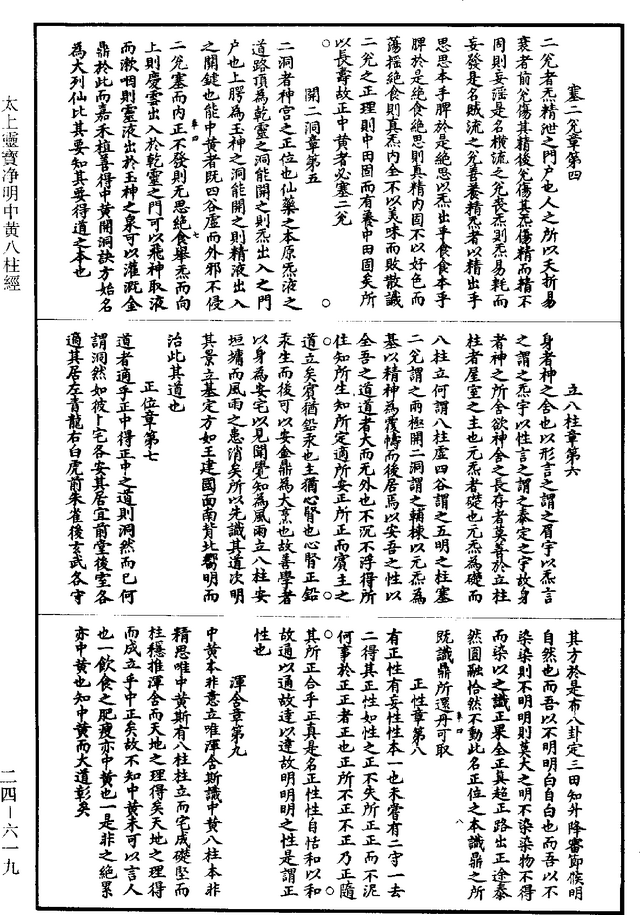 太上靈寶淨明中黃八柱經
二四－六一九
塞二兊章第四
二兊者炁精泄之門户也人之所以夭折易
衰者前兊傷其精後兊傷其炁傷精而精不
固則妄滛是名横流之兊喪炁則炁易耗而
妄發是名賊流之兊善養精炁者以精出乎
思思本乎脾於是絶思以炁出乎食食本乎
脾於是絶食絶思則真精内固不以好色而
蕩揺絶食則真炁内全不以美味而敗散識
二兊之正理則中田固而有養中田固矣所
以長壽故正中黃者必塞二兊
開二洞章第五
二洞者神宫之正位也仙藥之本原炁液之
道路頂為乾靈之洞能開之則炁出入之門
户也上腭為玉神之洞能開之則精液出入
之關鍵也能中黃者既四谷虚而外邪不侵
二兊塞而内正不發則无思絶食舉炁而向
上則慶雲出入於乾靈之門可以飛神取液
而漱咽則靈液出於玉神之泉可以灌溉金
鼎於此而嘉禾植善得中黃開洞訣方始名
為大列仙比其要知其要得道之本也
立八柱章第六
身者神之舍也以形言之謂之眉宇以炁言
之謂之炁宇以性言之謂之泰定之宇故身
者神之所舍欲神舍之長存者莫善於立柱
柱者屋室之主也元炁者礎也元炁為礎而
八柱立何謂八柱虚四谷謂之五明之柱塞
二兊謂之兩極開二洞謂之輔棟以元炁為
基以精神為覆幬而後居焉以安吾之性以
全吾之道道者大而无外也不沉不浮得所
住知所生知所定適所安正所正而賓主之
道立矣賓猶鉛汞也主猶心腎也心腎正鉛
汞生而後可以安金鼎為大烹也故善學者
以身為安宅以見聞覺知為風雨立八柱安
垣墉而風雨之患消矣所以先識其道次明
其景立基定方如王建國面南背北嚮明而
治此其道也
正位章第七
道者適乎正中得正中之道則洞然而已何
謂洞然如彼卜宅各安其居宜前堂後室各
適其居左青龍右白虎前朱雀後玄武各守
其方於是布八卦定三田知升降審節候明
自然也而吾以不明明白自白也而吾以不
染染則不明明則莫大之明不染染物不得
而染以之識正果全正真超正路出正途泰
然圓融恰然不動此名正位之本識鼎之所
既識鼎所還丹可取
正性章第八
有正性有妄性性本一也未嘗有二守一去
二得其正性如性之正不失所正正而不泥
何事於正正者正也正所不正不正乃正隨
其所正合乎正真是名正性性自恬和以和
故通以通故達以達故明明明之性是謂正
性也
渾舍章第九
中黃本非意立唯渾舍斯識中黃八柱本非
精思唯中黃斯有八柱柱立而宅成礎堅而
柱穩推渾舍而天地之理得矣天地之理得
而成立乎中正矣故不知中黃未可以言人
也一飲食之肥瘦亦中黃也一是非之絶累
亦中黃也知中黃而大道彰矣